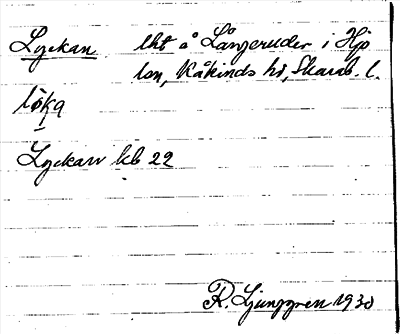 Lyckan. lht å Långeruder i Hjo
lsn, Kåkinds hd, Skarab. l.
löka
Lyckan kb 22
R. Ljunggren 1930